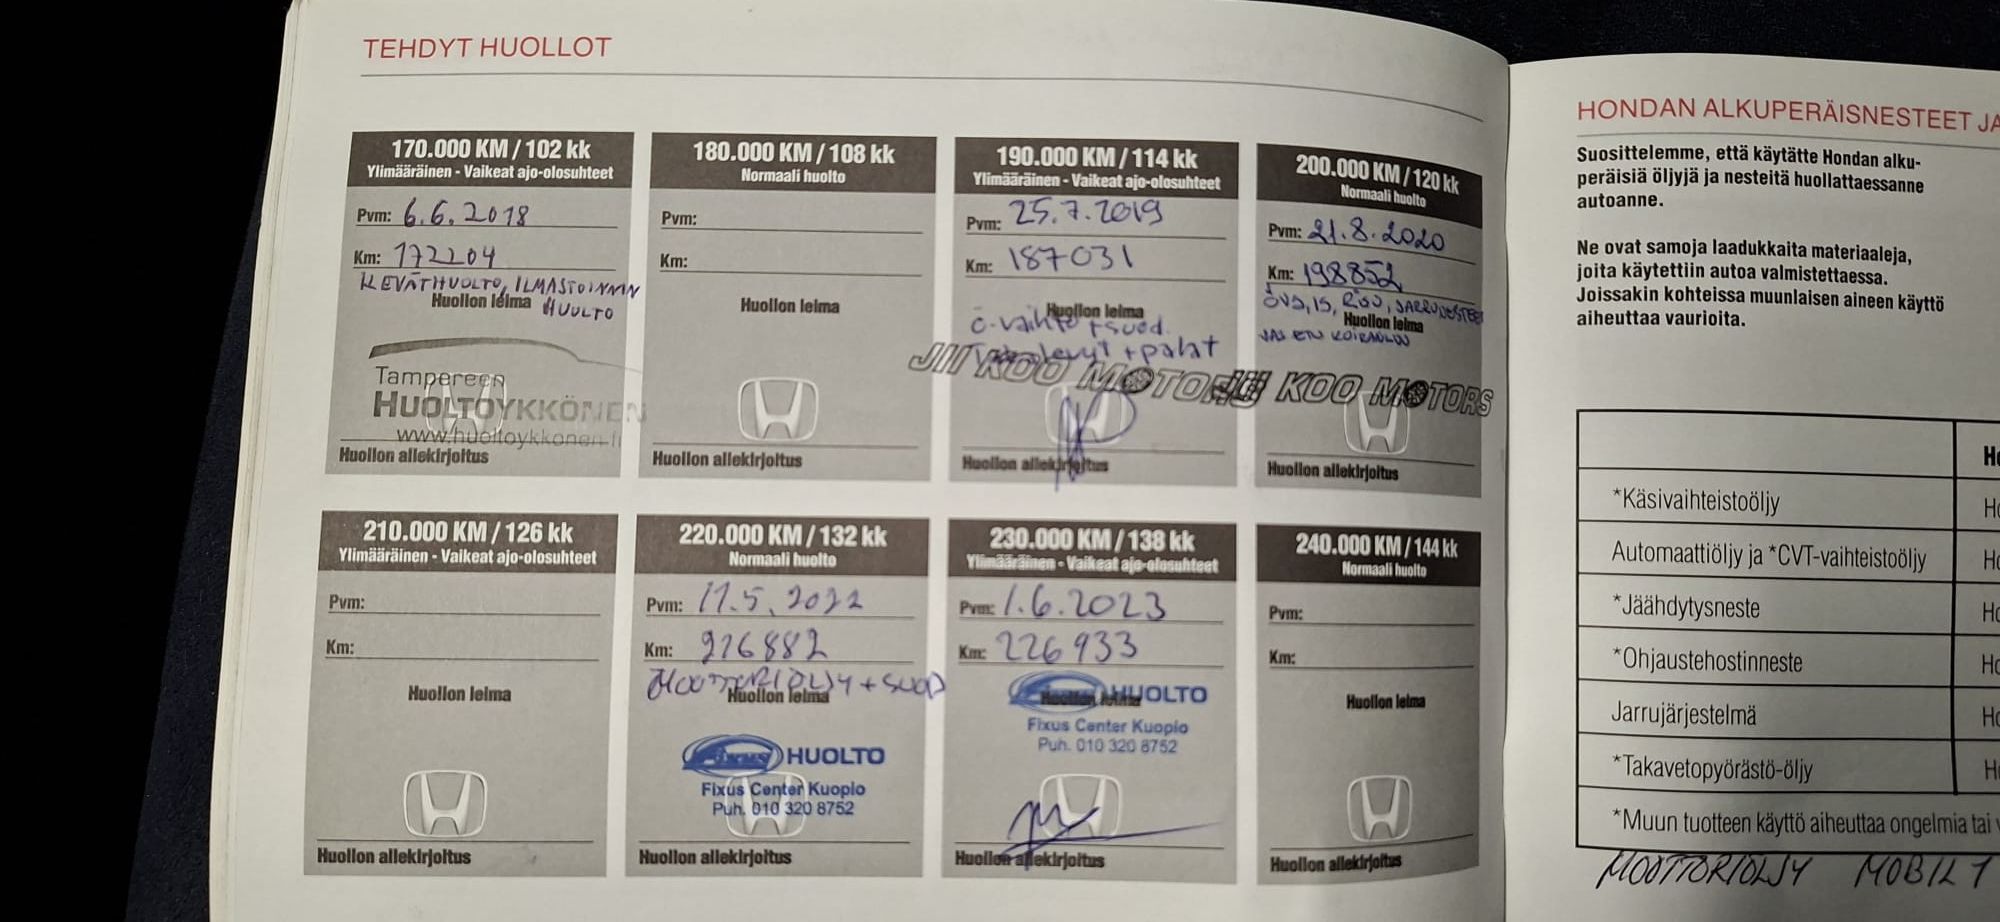 TEHDYT HUOLLOT
170.000 KM / 102 kk
Ylimääräinen - Vaikeat ajo-olosuhteet
Pvm: 6.6.2018
Km: 172204
KEVÄTHUOLTO, ILMASTOINNIN
Huollon leima HUOLTO
Tampereen
HUOLTOYKKÖNEN
www.huoltoykkonen.fi
Huollon allekirjoitus
180.000 KM / 108 kk
Normaali huolto
Pvm:
Km:
Huollon leima
Huollon allekirjoitus
190.000 KM / 114 kk
Ylimääräinen - Vaikeat ajo-olosuhteet
Pvm: 25.7.2019
Km: 187031
Huollon leima
Ö-vaihto + suod.
+ palat
JII KOO MOTORS
Huollon allekirjoitus
200.000 KM / 120 kk
Normaali huolto
Pvm: 21.8.2020
Km: 198852
JARRUNESTEE
Huollon leima
JII KOO MOTORS
Huollon allekirjoitus
210.000 KM / 126 kk
Ylimääräinen - Vaikeat ajo-olosuhteet
Pvm:
Km:
Huollon leima
Huollon allekirjoitus
220.000 KM / 132 kk
Normaali huolto
Pvm: 11.5.2022
Km: 216882
MOOTTORIÖLJY + SUOD
Huollon leima
FIXUS HUOLTO
Fixus Center Kuopio
Puh. 010 320 8752
Huollon allekirjoitus
230.000 KM / 138 kk
Ylimääräinen - Vaikeat ajo-olosuhteet
Pvm: 1.6.2023
Km: 226933
Huollon leima
HUOLTO
Fixus Center Kuopio
Puh. 010 320 8752
Huollon allekirjoitus
240.000 KM / 144 kk
Normaali huolto
Pvm:
Km:
Huollon leima
Huollon allekirjoitus
HONDAN ALKUPERÄISNESTEET JA
Suosittelemme, että käytätte Hondan alku-
peräisiä öljyjä ja nesteitä huollattaessanne
autoanne.
Ne ovat samoja laadukkaita materiaaleja,
joita käytettiin autoa valmistettaessa.
Joissakin kohteissa muunlaisen aineen käyttö
aiheuttaa vaurioita.
*Käsivaihteistoöljy
Automaattiöljy ja *CVT-vaihteistoöljy
*Jäähdytysneste
*Ohjaustehostinneste
Jarrujärjestelmä
*Takavetopyörästö-öljy
*Muun tuotteen käyttö aiheuttaa ongelmia tai
MOOTTORIÖLJY MOBIL 1